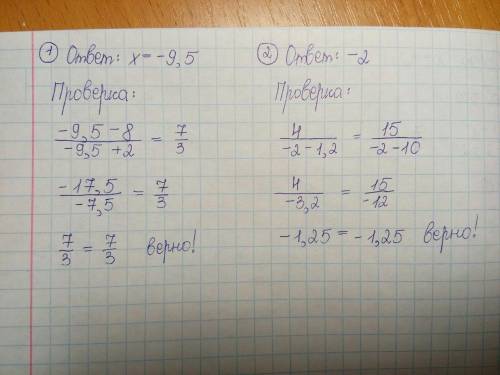 ① Ответ: x = -9,5
Проверка:
\frac{-9,5 - 8}{-9,5 + 2} = \frac{7}{3}
\frac{-17,5}{-7,5} = \frac{7}{3}
\frac{7}{3} = \frac{7}{3} верно!
② Ответ: -2
Проверка:
\frac{4}{-2 - 1,2} = \frac{15}{-2 - 10}
\frac{4}{-3,2} = \frac{15}{-12}
-1,25 = -1,25 верно!